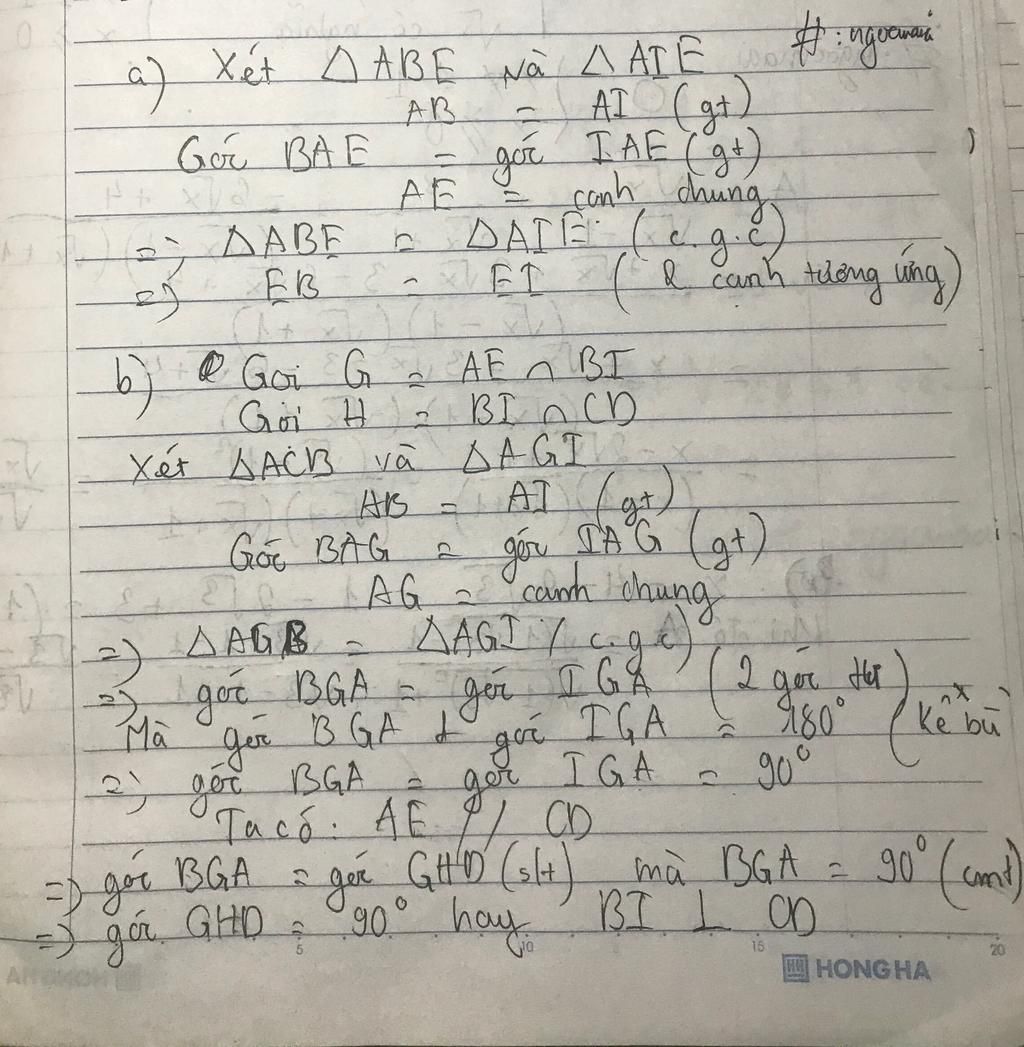 #: ngocmai
a) Xét △ABE và △AIE
AB = AI (gt)
Góc BAE = góc IAE (gt)
AE = cạnh chung
=> △ABE = △AIE (c.g.c)
=> EB = EI (2 cạnh tương ứng)
b) Gọi G = AE ∩ BI
Gọi H = BI ∩ CD
Xét △ACB và △AGI
AB = AI (gt)
Góc BAG = góc IAG (gt)
AG = cạnh chung
=> △AGB = △AGI (c.g.c)
=> góc BGA = góc IGA (2 góc tư)
Mà góc BGA + góc IGA = 180° (kề bù
=> góc BGA = góc IGA = 90°
Ta có: AE // CD
=> góc BGA = góc GHD (slt) mà BGA = 90° (cmt)
=> góc GHD = 90° hay BI ⊥ CD
5 10 15 20
HONG HA